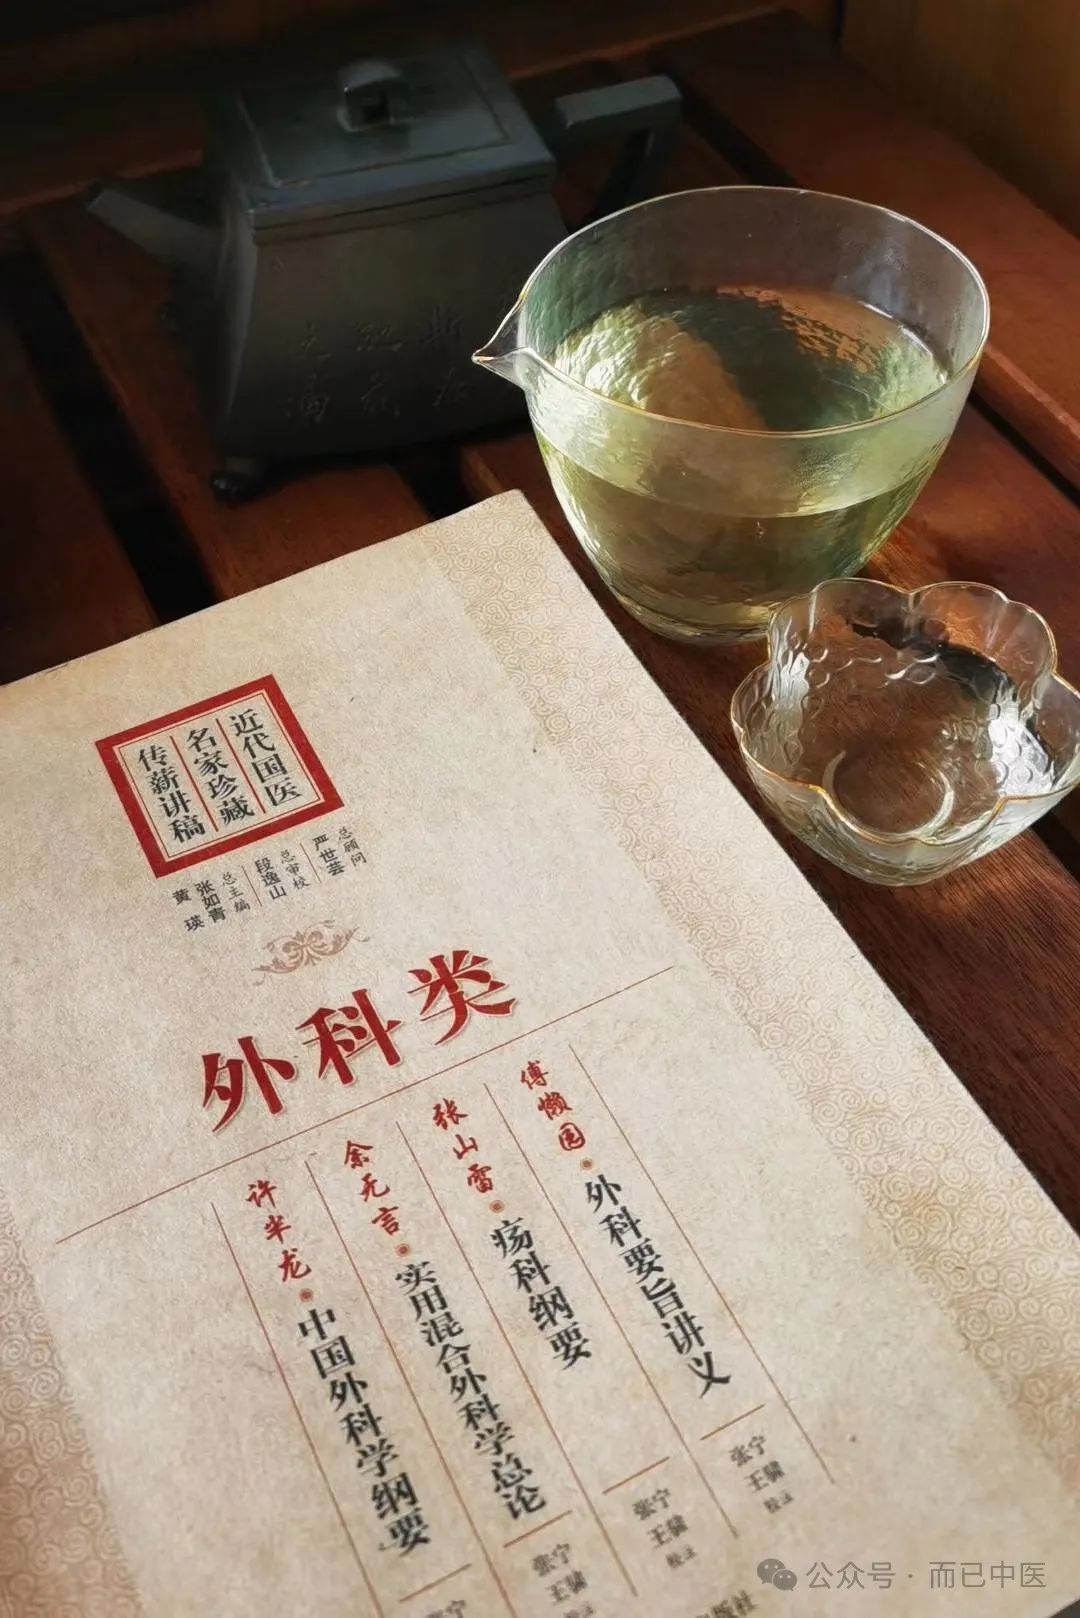 近代国医
名家珍藏
传薪讲稿
总顾问
严世芸
总审校
段逸山
总主编
张如青
黄瑛
外科类
傅懒园·外科要旨讲义
张宁
王骕
校注
张山雷·疡科纲要
张宁
王骕
校注
余无言·实用混合外科学总论
张宁
王骕
许半龙·中国外科学纲要
张宁
版社
公众号·而已中医